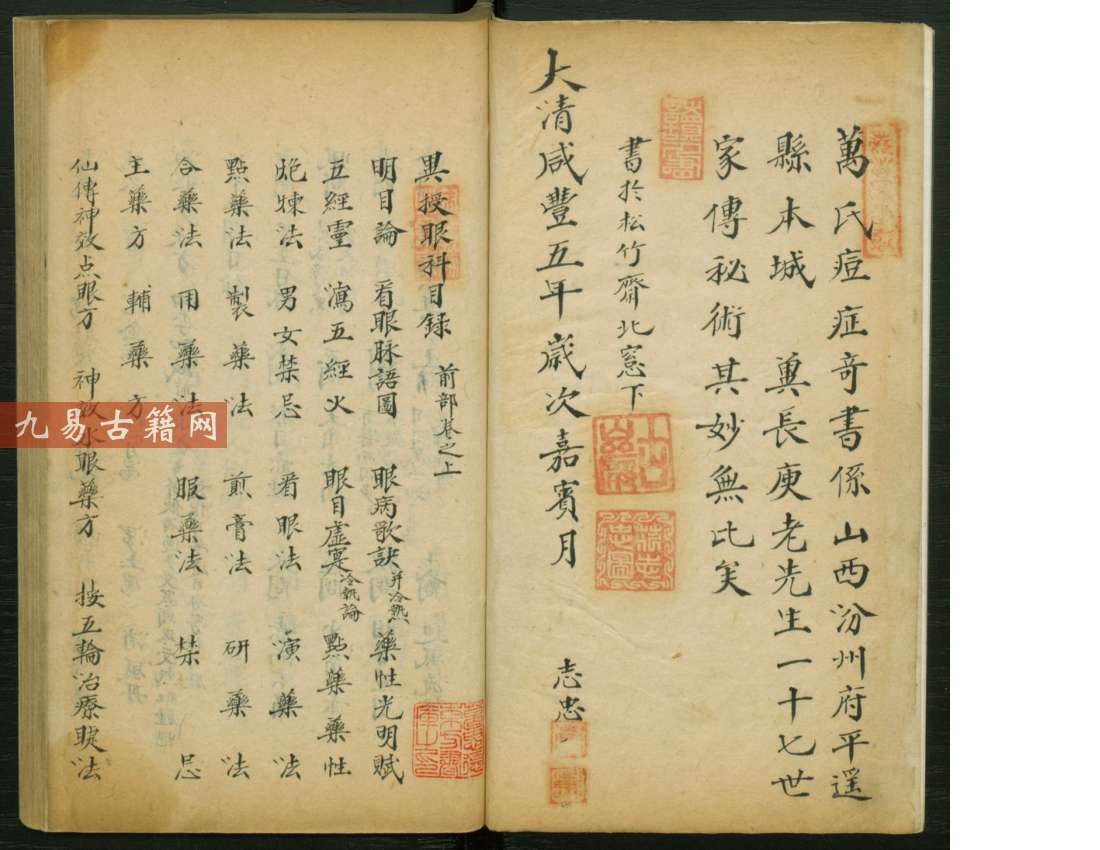 萬氏痘症奇書係山西汾州府平遥
縣本城冀長庚老先生一十七世
家傳秘術其妙無比矣
書於松竹齋北窓下
大清咸豐五年歲次嘉賓月
志忠
異授眼科目録 前部卷之上
明目論 看眼脉語圖 眼病歌訣并冷熱 藥性光明賦
五經靈 瀉五經火 眼目虛寔冷熱論 點藥藥性
炮煉法 男女禁忌 看眼法 演藥法
點藥法 製藥法 煎膏法 研藥法
合藥法 用藥法 服藥法 禁忌
主藥方 輔藥方
仙傳神效点眼方 神效水眼藥方 按五輪治療眼法
九易古籍网